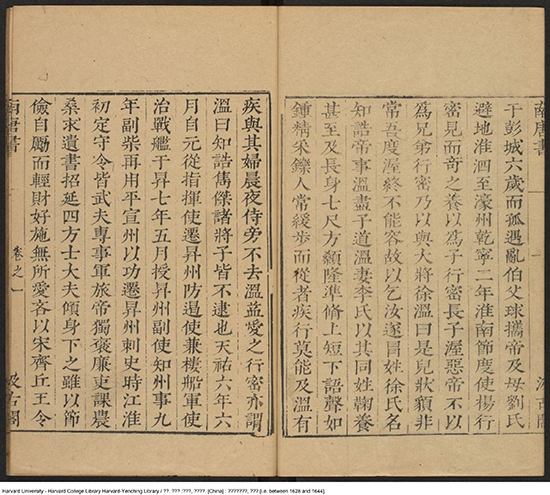 南唐書
一
汲古閣
于彭城六歲而孤遇亂伯父球攜帝及母劉氏
避地淮泗至濠州乾寧二年淮南節度使楊行
密見而奇之養以爲子行密長子渥惡帝不以
爲兄弟行密乃以與大將徐溫曰是兒狀貌非
常吾度渥終不能容故以乞汝遂冒姓徐氏名
知誥帝事溫盡子道溫妻李氏以其同姓鞠養
甚至及長身七尺方顙隆準修上短下語聲如
鍾精采鑠人常緩步而從者疾行莫能及溫有
疾與其婦晨夜侍旁不去溫益愛之行密亦謂
溫曰知誥雋傑諸將子皆不逮也天祐六年六
月自元從指揮使遷昇州防遏使兼樓船軍使
治戰艦于昇七年五月授昇州副使知州事九
年副柴再用平宣州以功遷昇州刺史時江淮
初定守令皆武夫專事軍旅帝獨褒廉吏課農
桑求遺書招延四方士大夫傾身下之雖以節
儉自勵而輕財好施無所愛吝以宋齊丘王令
南唐書
卷之一
汲古閣
Harvard University - Harvard College Library Harvard-Yenching Library / ??. ??? :???, ????. [China] : ???????, ??? [i.e. between 1628 and 1644].